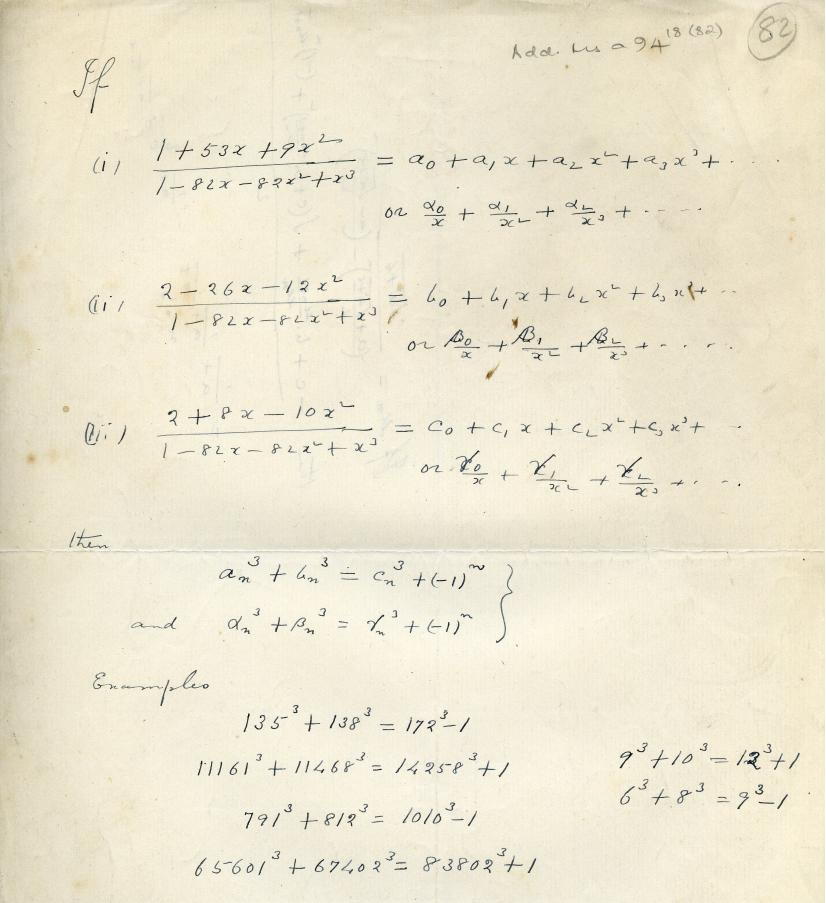 Add. Ms a 94¹⁸⁽⁸²⁾ 82
If
(i) (1 + 53x + 9x²)/(1 - 82x - 82x² + x³) = a₀ + a₁x + a₂x² + a₃x³ + ....
or α₀/x + α₁/x² + α₂/x³ + .....
(ii) (2 - 26x - 12x²)/(1 - 82x - 82x² + x³) = b₀ + b₁x + b₂x² + b₃x³ + ...
or β₀/x + β₁/x² + β₂/x³ + .....
(iii) (2 + 8x - 10x²)/(1 - 82x - 82x² + x³) = c₀ + c₁x + c₂x² + c₃x³ + ..
or γ₀/x + γ₁/x² + γ₂/x³ + ....
then
aₙ³ + bₙ³ = cₙ³ + (-1)ⁿ }
and αₙ³ + βₙ³ = γₙ³ + (-1)ⁿ
Examples
135³ + 138³ = 172³ - 1
11161³ + 11468³ = 14258³ + 1
791³ + 812³ = 1010³ - 1
65601³ + 67402³ = 83802³ + 1
9³ + 10³ = 12³ + 1
6³ + 8³ = 9³ - 1